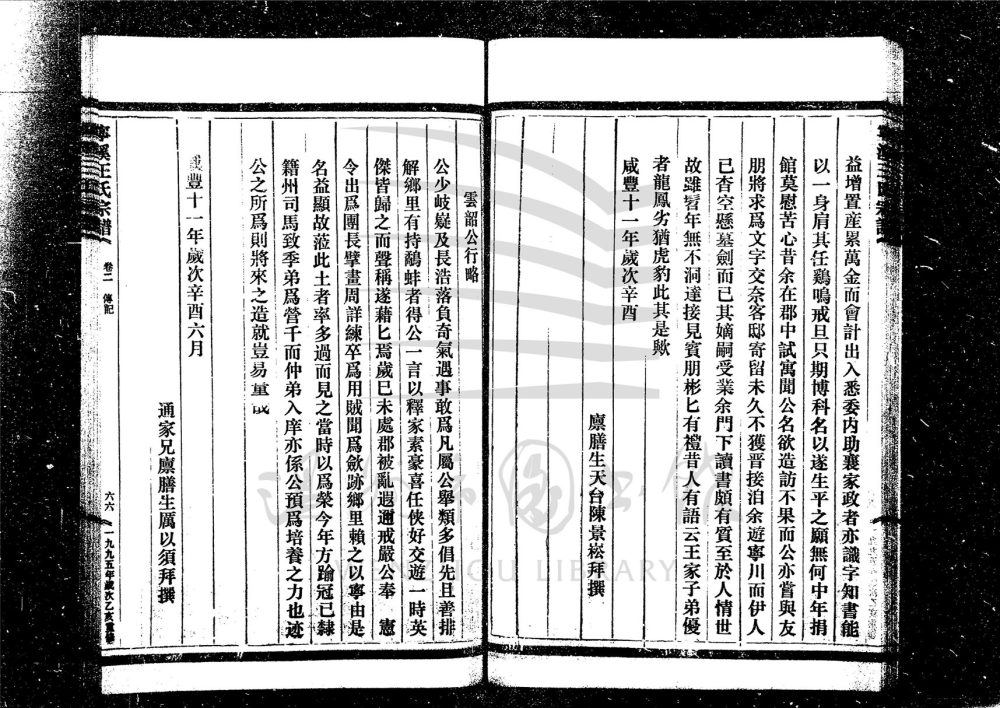 益增置産累萬金而會計出入悉委内助襄家政者亦識字知書能
以一身肩其任鷄鳴戒旦只期博科名以遂生平之願無何中年捐
館莫慰苦心昔余在郡中試寓聞公名欲造訪不果而公亦嘗與友
朋將求爲文字交奈客邸寄留未久不獲晋接洎余遊寧川而伊人
已杳空懸墓劍而已其嫡嗣受業余門下讀書頗有質至於人情世
故雖髫年無不洞達接見賓朋彬匕有禮昔人有語云王家子弟優
者龍鳳劣猶虎豹此其是歟
咸豐十一年歲次辛酉
廪膳生天台陳景崧拜撰
雲韶公行略
公少岐嶷及長浩落負奇氣遇事敢爲凡屬公舉類多倡先且善排
解鄉里有持鷸蚌者得公一言以釋家素豪喜任俠好交遊一時英
傑皆歸之而聲稱遂藉匕焉歲巳未處郡被亂遐邇戒嚴公奉 憲
令出爲團長擘畫周詳練卒爲用賊聞爲歛跡鄉里賴之以寧由是
名益顯故蒞此土者率多過而見之當時以爲榮今年方踰冠已隸
籍州司馬致季弟爲營千而仲弟入庠亦係公預爲培養之力也迹
公之所爲則將來之造就豈易量哉
咸豐十一年歲次辛酉六月
通家兄廪膳生厲以須拜撰
寧溪王氏宗譜
卷二 傳記
六六
一九九五年歲次乙亥重修
WENZHOU LIBRARY